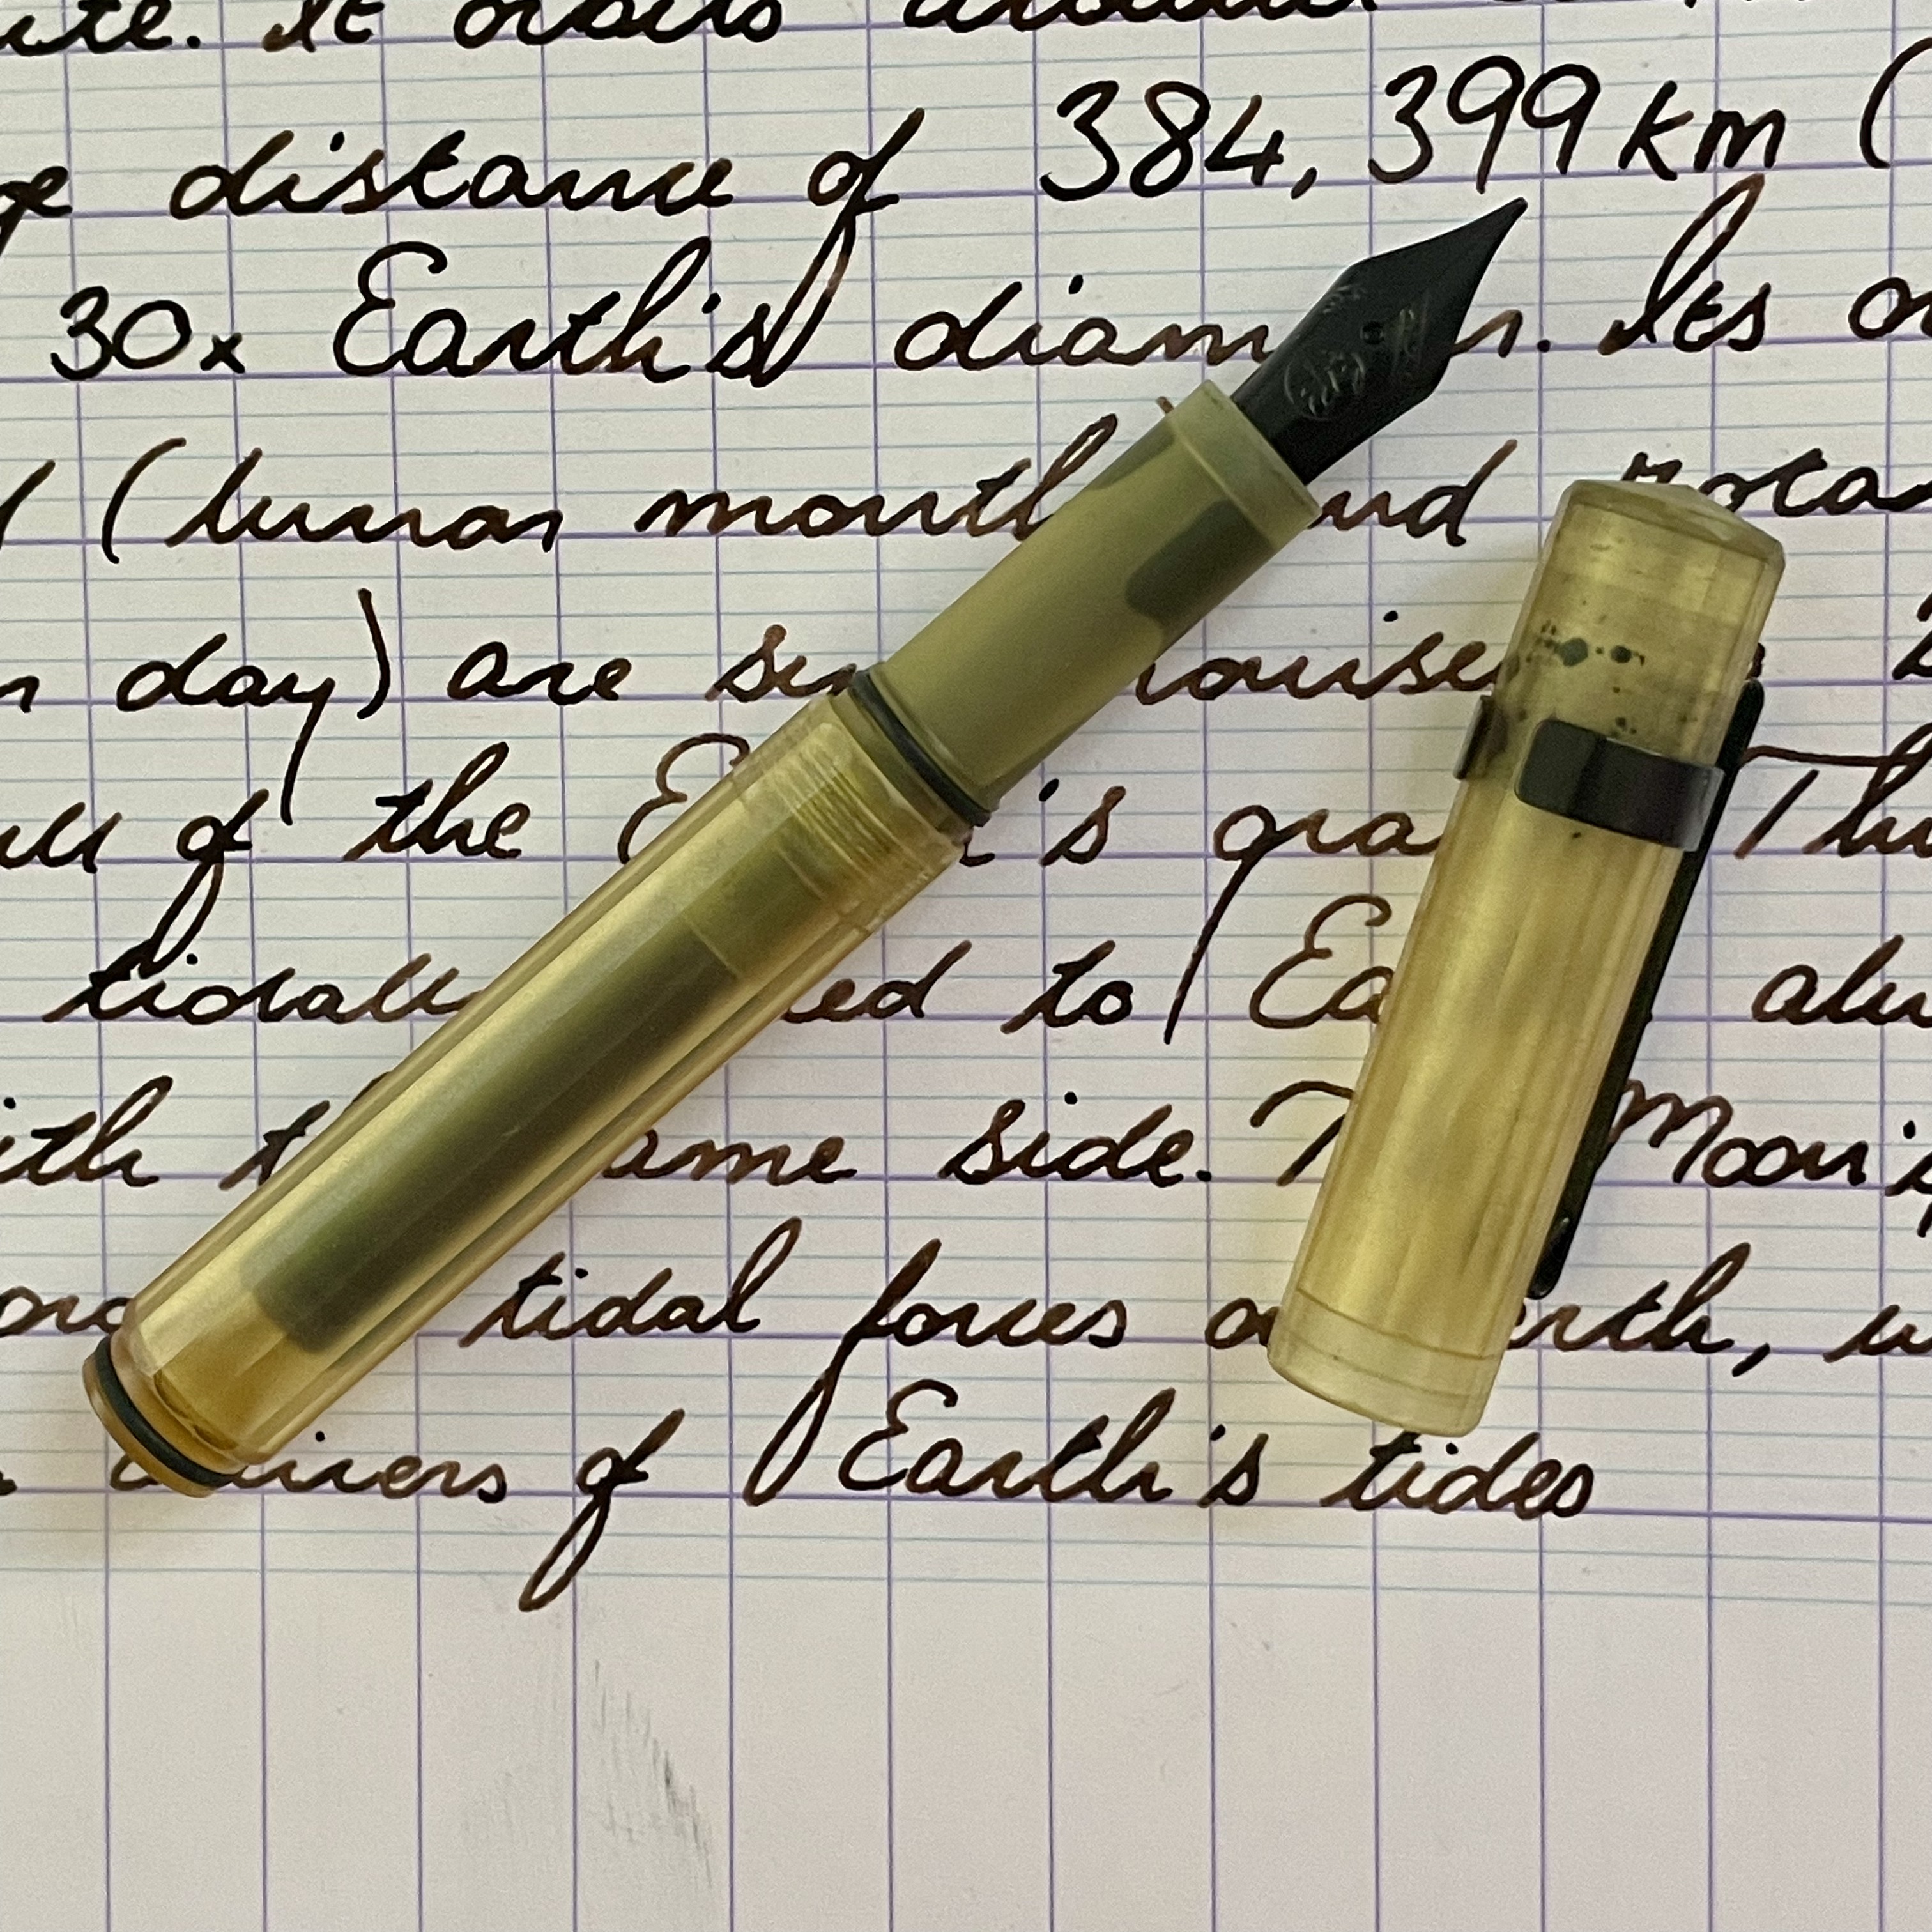 It orbits around
distance of 384,399 km (
30x Earth's diam r. Its
(lunar month and rota
day) are syn ronised
of the E 's gra Thi
tidall ed to Ea
ith t ame side. T Moon's
tidal forces o rth,
of Earth's tides